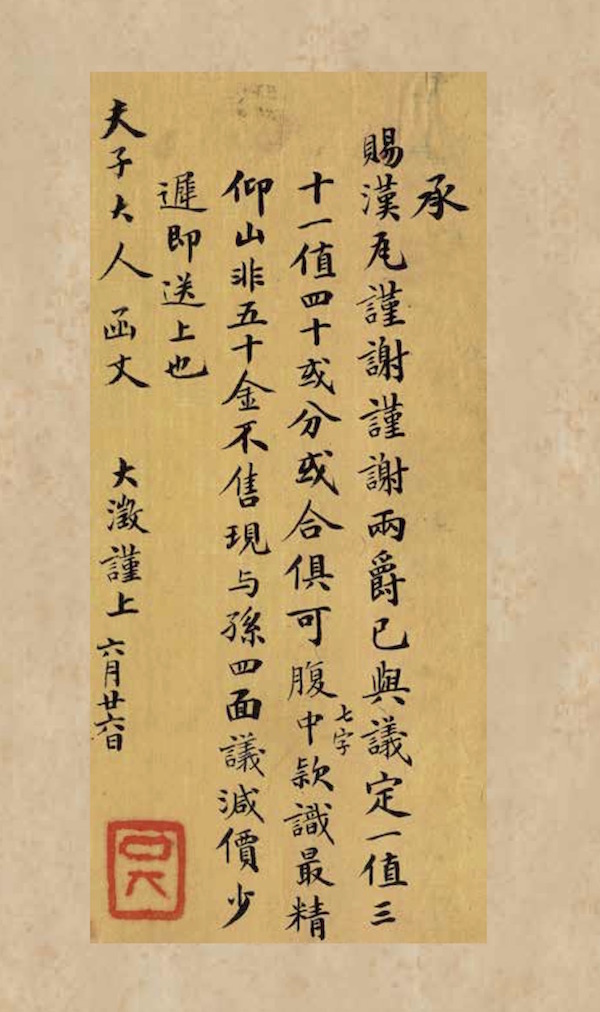 承
賜漢瓦謹謝謹謝兩爵已與議定一值三
十一值四十或分或合俱可腹中七字欵識最精
仰山非五十金不售現与孫四面議減價少
遲即送上也
夫子大人函丈 大澂謹上 六月廿六日
吳